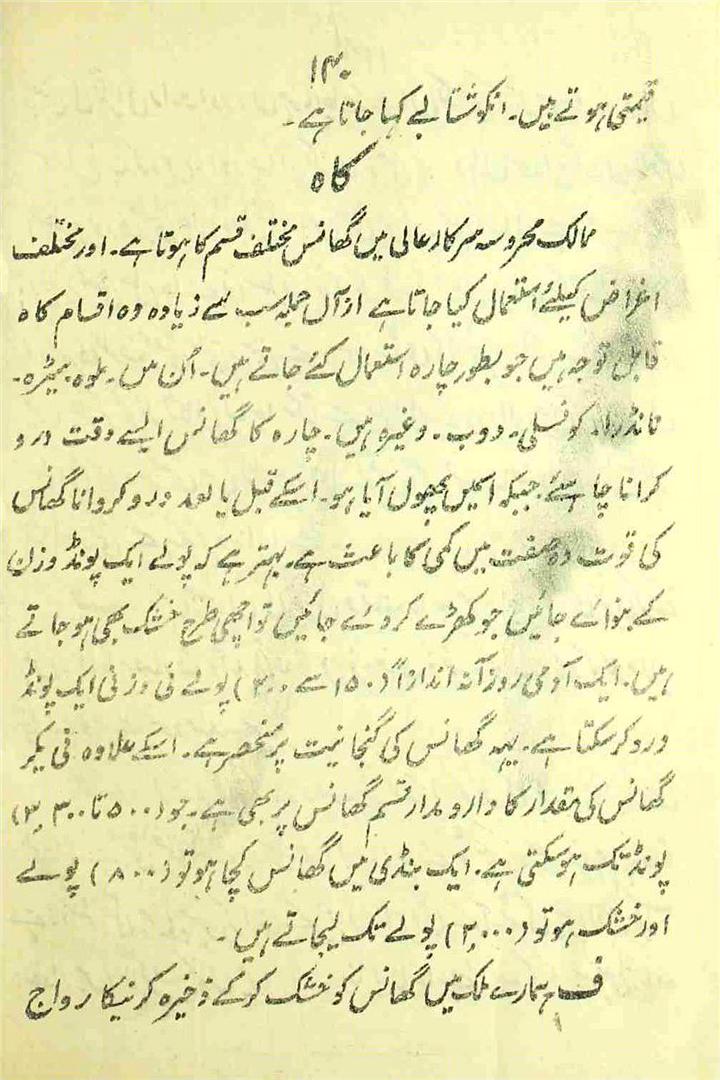 ۱۴۰
قیمتی ہوتے ہیں۔ انکوشتالبے کہا جاتا ہے۔
کاہ
ممالک محروسہ سرکارعالی میں گھانس مختلف قسم کا ہوتا ہے۔ اور مختلف
اغراض کیلئے استعمال کیا جاتا ہے ازآں جملہ سب سے زیادہ وہ اقسام کاہ
قابل توجہ ہیں جو بطور چارہ استعمال کئے جاتے ہیں۔ اُن میں۔ پلوہ۔ بیڑہ۔
نانڈرا۔ کونسلی۔ دوب۔ وغیرہ ہیں۔ چارہ کا گھانس ایسے وقت درو
کرانا چاہئے جبکہ اسمیں پھول آیا ہو۔ اسکے قبل یا بعد درو کروانا گھانس
کی قوت و صفت میں کمی کا باعث ہے۔ بہتر ہے کہ پولے ایک پونڈ وزن
کے بنوائے جائیں جو کھڑے کردئے جائیں تو اچھی طرح خشک بھی ہوجاتے
ہیں۔ ایک آدمی روزآنہ اندازاً (۱۵۰ سے ۳۰۰) پولے فی وزنی ایک پونڈ
درو کرسکتا ہے۔ یہہ گھانس کی گنجانیت پر منحصر ہے۔ اسکے علاوہ فی یکر
گھانس کی مقدار کا دارو مدار قسم گھانس پر بھی ہے۔ جو (۵۰۰ تا ۳٫۳۰۰)
پونڈ تک ہوسکتی ہے۔ ایک بنڈی میں گھانس کچا ہو تو (۸۰۰) پولے
اور خشک ہو تو (۳٫۰۰۰) پولے تک لیجاتے ہیں۔
ف ہمارے ملک میں گھانس کو خشک کرکے ذخیرہ کرنیکا رواج